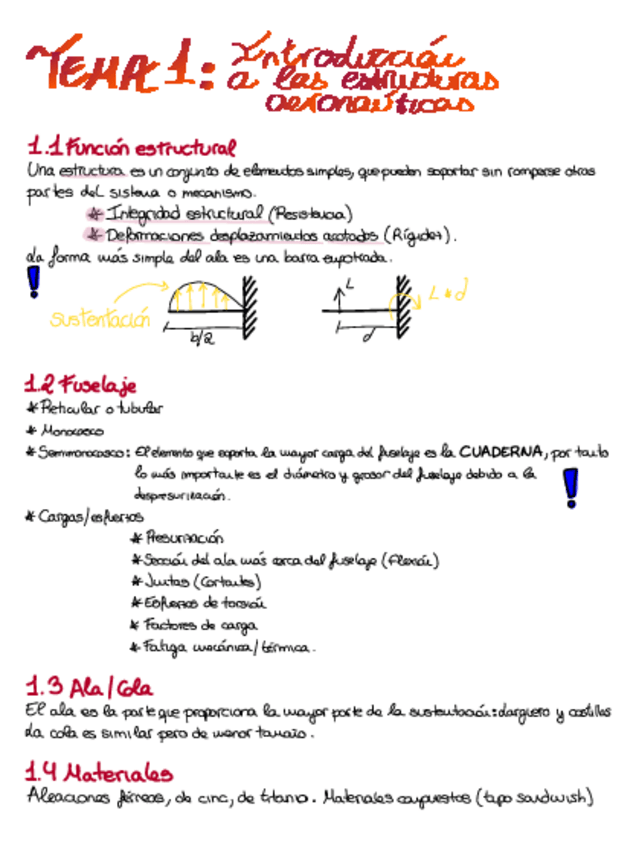 TEMA 1: Introducción
a las estructuras
aeronaúticas
1.1 Función estructural
Una estructura es un conjunto de elementos simples, que pueden soportar sin romperse otras
partes del sistema o mecanismo.
* Integridad estructural (Resistencia)
* Deformaciones desplazamientos acotados (Rígidez).
La forma más simple del ala es una barra empotrada.
!
sustentación
b/2
L
d
L * d
1.2 Fuselaje
* Reticular o tubular
* Monocasco
* Semimonocasco: El elemento que soporta la mayor carga del fuselaje es la CUADERNA, por tanto
lo más importante es el diámetro y grosor del fuselaje debido a la
despresurización.
!
* Cargas/esfuerzos
* Presurización
* Sección del ala más cerca del fuselaje (Flexión)
* Juntas (Cortantes)
* Esfuerzos de torsión
* Factores de carga
* Fatiga mecánica/térmica.
1.3 Ala/Cola
El ala es la parte que proporciona la mayor parte de la sustentación: larguero y costillas
La cola es similar pero de menor tamaño.
1.4 Materiales
Aleaciones férreas, de cinc, de titanio. Materiales compuestos (tipo sandwish)